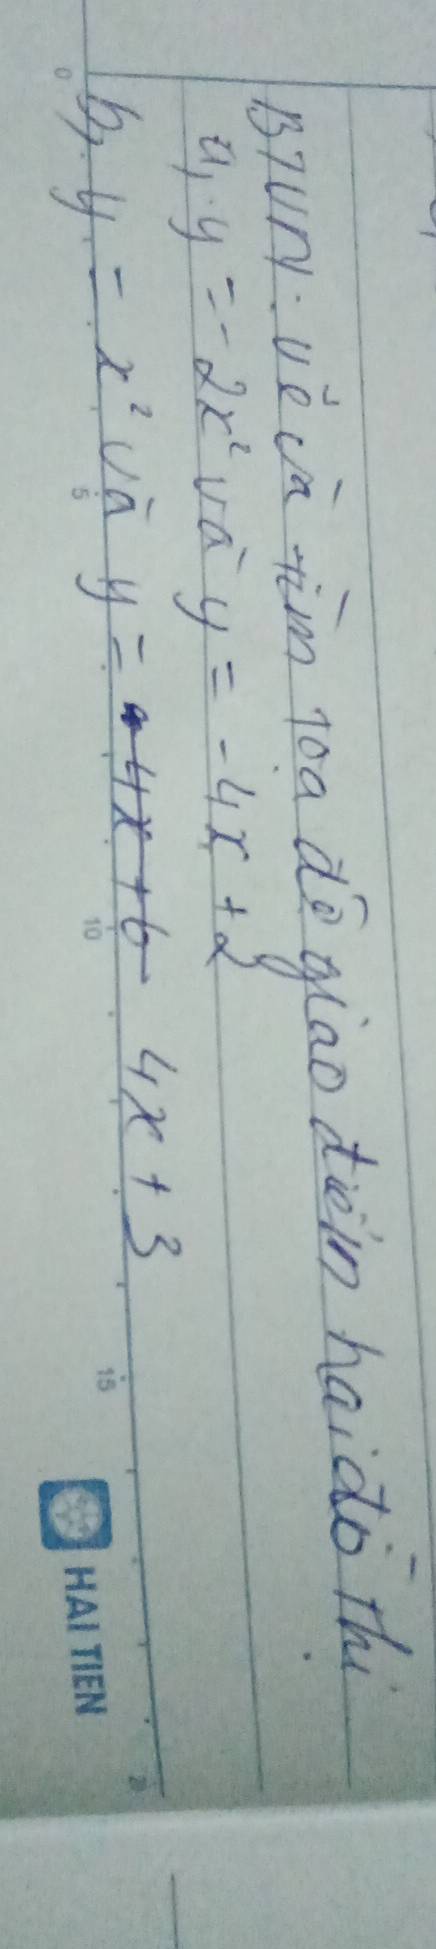 BTVN. vẽ và tìm toạ độ giao điểm hai đồ thị
a, y = -2x² và y = -4x + 2
b, y = x² và y = -4x + 6 4x + 3
0 5 10 15
HAI TIEN